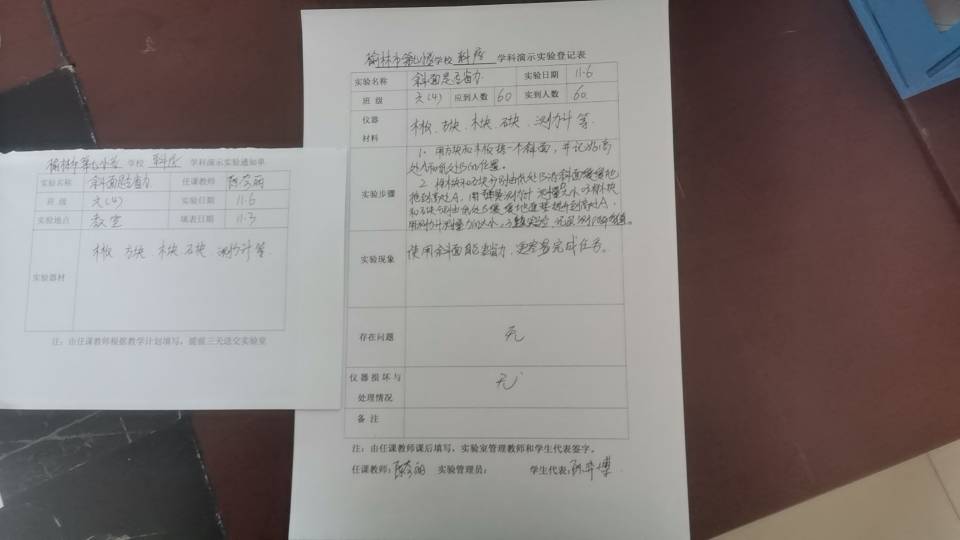 榆林市第七小学 学校 科学 学科演示实验通知单
实验名称 斜面是否省力 任课教师
班 级 六(4) 实验日期 11.6
实验地点 教室 填表日期 11.3
实验器材 木板 方块 木块 石块 测力计等
注:由任课教师根据教学计划填写,提前三天送交实验室
榆林市第七小学 学校 科学 学科演示实验登记表
实验名称 斜面是否省力 实验日期 11.6
班 级 六(4) 应到人数 60 实到人数 60
仪器
材料
木板、方块、木块、石块、测力计等.
实验步骤
1. 用方块和木板搭一个斜面,并记好高
处A和低处B的位置。
2. 将木块和石块分别由低处B沿斜面缓缓地
拖到高处A,用弹簧测力计测量力大小
实验现象
使用斜面能省力,更容易完成任务。
存在问题 无
仪器损坏与
处理情况
无
备 注
注:由任课教师课后填写,实验室管理教师和学生代表签字。
任课教师: 实验管理员: 学生代表: